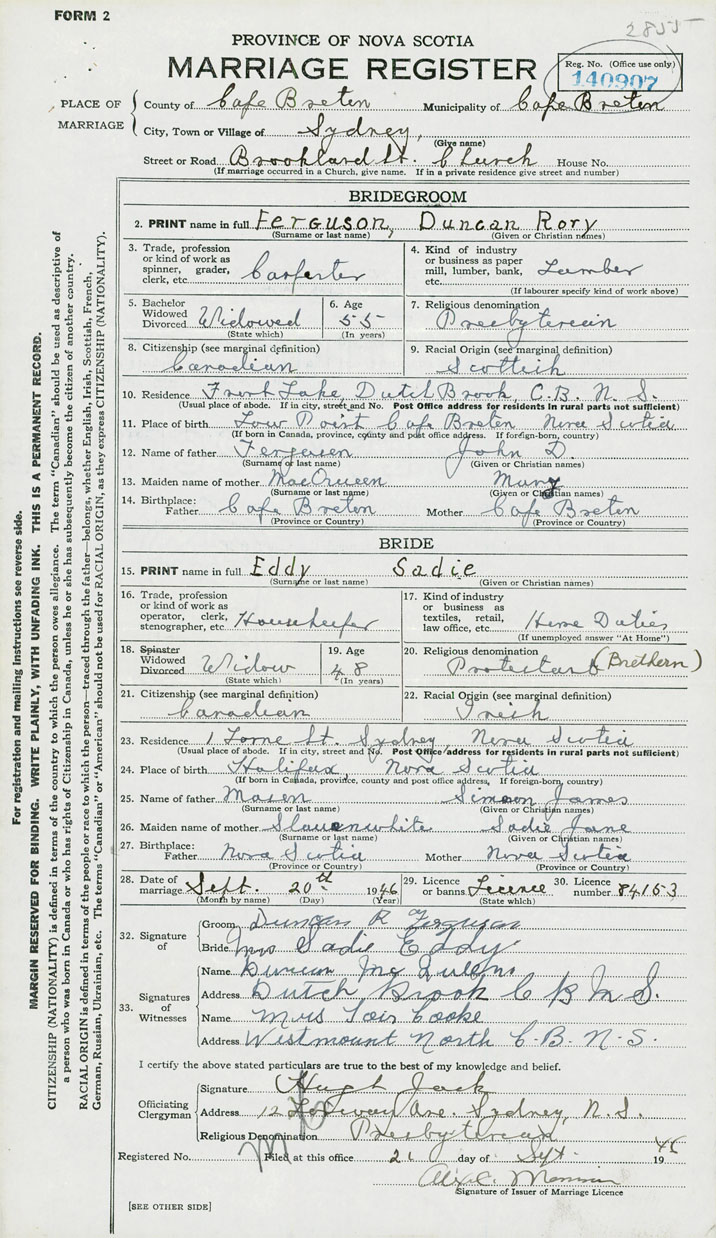 FORM 2
2855
PROVINCE OF NOVA SCOTIA
MARRIAGE REGISTER
Reg. No. (Office use only)
140907
PLACE OF MARRIAGE
County of Cape Breton Municipality of Cape Breton
City, Town or Village of Sydney,
(Give name)
Street or Road Brookland St. Church House No.
(If marriage occurred in a Church, give name. If in a private residence give street and number)
BRIDEGROOM
2. PRINT name in full Ferguson, Duncan Rory
(Surname or last name) (Given or Christian names)
3. Trade, profession or kind of work as spinner, grader, clerk, etc. Carpenter
4. Kind of industry or business as paper mill, lumber, bank, etc. Lumber
(If labourer specify kind of work above)
5. Bachelor Widowed Divorced Widowed
(State which)
6. Age 55
(In years)
7. Religious denomination Presbyterian
8. Citizenship (see marginal definition) Canadian
9. Racial Origin (see marginal definition) Scottish
10. Residence Front Lake, Dutch Brook, C.B. N.S.
(Usual place of abode. If in city, street and No. Post Office address for residents in rural parts not sufficient)
11. Place of birth Low Point Cape Breton Nova Scotia
(If born in Canada, province, county and post office address. If foreign-born, country)
12. Name of father Ferguson John D.
(Surname or last name) (Given or Christian names)
13. Maiden name of mother MacQueen Mary
(Surname or last name) (Given or Christian names)
14. Birthplace: Father Cape Breton Mother Cape Breton
(Province or Country) (Province or Country)
BRIDE
15. PRINT name in full Eddy Sadie
(Surname or last name) (Given or Christian names)
16. Trade, profession or kind of work as operator, clerk, stenographer, etc. Housekeeper
17. Kind of industry or business as textiles, retail, law office, etc. Home Duties
(If unemployed answer "At Home")
18. Spinster Widowed Divorced Widow
(State which)
19. Age 48
(In years)
20. Religious denomination Protestant (Brethern)
21. Citizenship (see marginal definition) Canadian
22. Racial Origin (see marginal definition) Irish
23. Residence 1 Lorne St. Sydney, Nova Scotia
(Usual place of abode. If in city, street and No. Post Office address for residents in rural parts not sufficient)
24. Place of birth Halifax, Nova Scotia
(If born in Canada, province, county and post office address. If foreign-born, country)
25. Name of father Mason Simeon James
(Surname or last name) (Given or Christian names)
26. Maiden name of mother Slauenwhite Sadie Jane
(Surname or last name) (Given or Christian names)
27. Birthplace: Father Nova Scotia Mother Nova Scotia
(Province or Country) (Province or Country)
28. Date of marriage Sept. 20th 1946
(Month by name) (Day) (Year)
29. Licence or banns Licence
(State which)
30. Licence number 84153
32. Signature of
Groom Duncan R Ferguson
Bride Mrs Sadie Eddy
33. Signatures of Witnesses
Name Duncan
Address Dutch Brook C B N S.
Name Mrs Lois Cooke
Address Westmount North C.B. N.S.
I certify the above stated particulars are true to the best of my knowledge and belief.
Officiating Clergyman
Signature Hugh Jack
Address 12 Ave. Sydney, N.S.
Religious Denomination Presbyterian
Registered No. Filed at this office 21 day of Sept. 1946
Signature of Issuer of Marriage Licence
[SEE OTHER SIDE]
For registration and mailing instructions see reverse side.
MARGIN RESERVED FOR BINDING. WRITE PLAINLY, WITH UNFADING INK. THIS IS A PERMANENT RECORD.
CITIZENSHIP (NATIONALITY) is defined in terms of the country to which the person owes allegiance. The term "Canadian" should be used as descriptive of
a person who was born in Canada or who has rights of Citizenship in Canada, unless he or she has subsequently become the citizen of another country.
RACIAL ORIGIN is defined in terms of the people or race to which the person—traced through the father—belongs, whether English, Irish, Scottish, French,
German, Russian, Ukrainian, etc. The terms "Canadian" or "American" should not be used for RACIAL ORIGIN, as they express CITIZENSHIP (NATIONALITY).